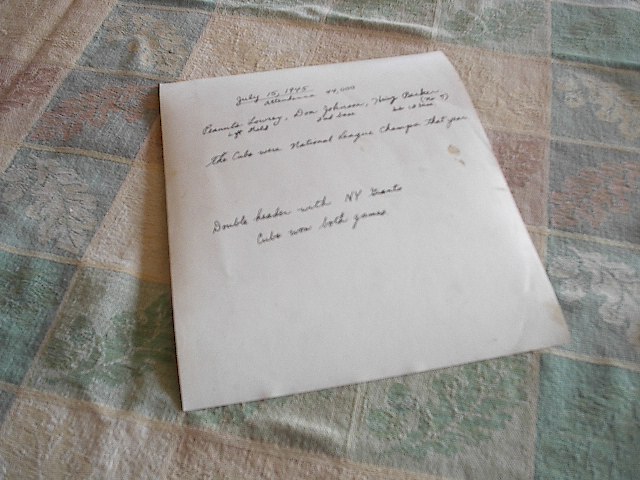 July 15, 1945
Attendance 44,000
Peanuts Lowrey, Don Johnson, Parker
Left Field 2nd base (No
the Cubs were National League Champs that year
Double header with NY Giants
Cubs won both games